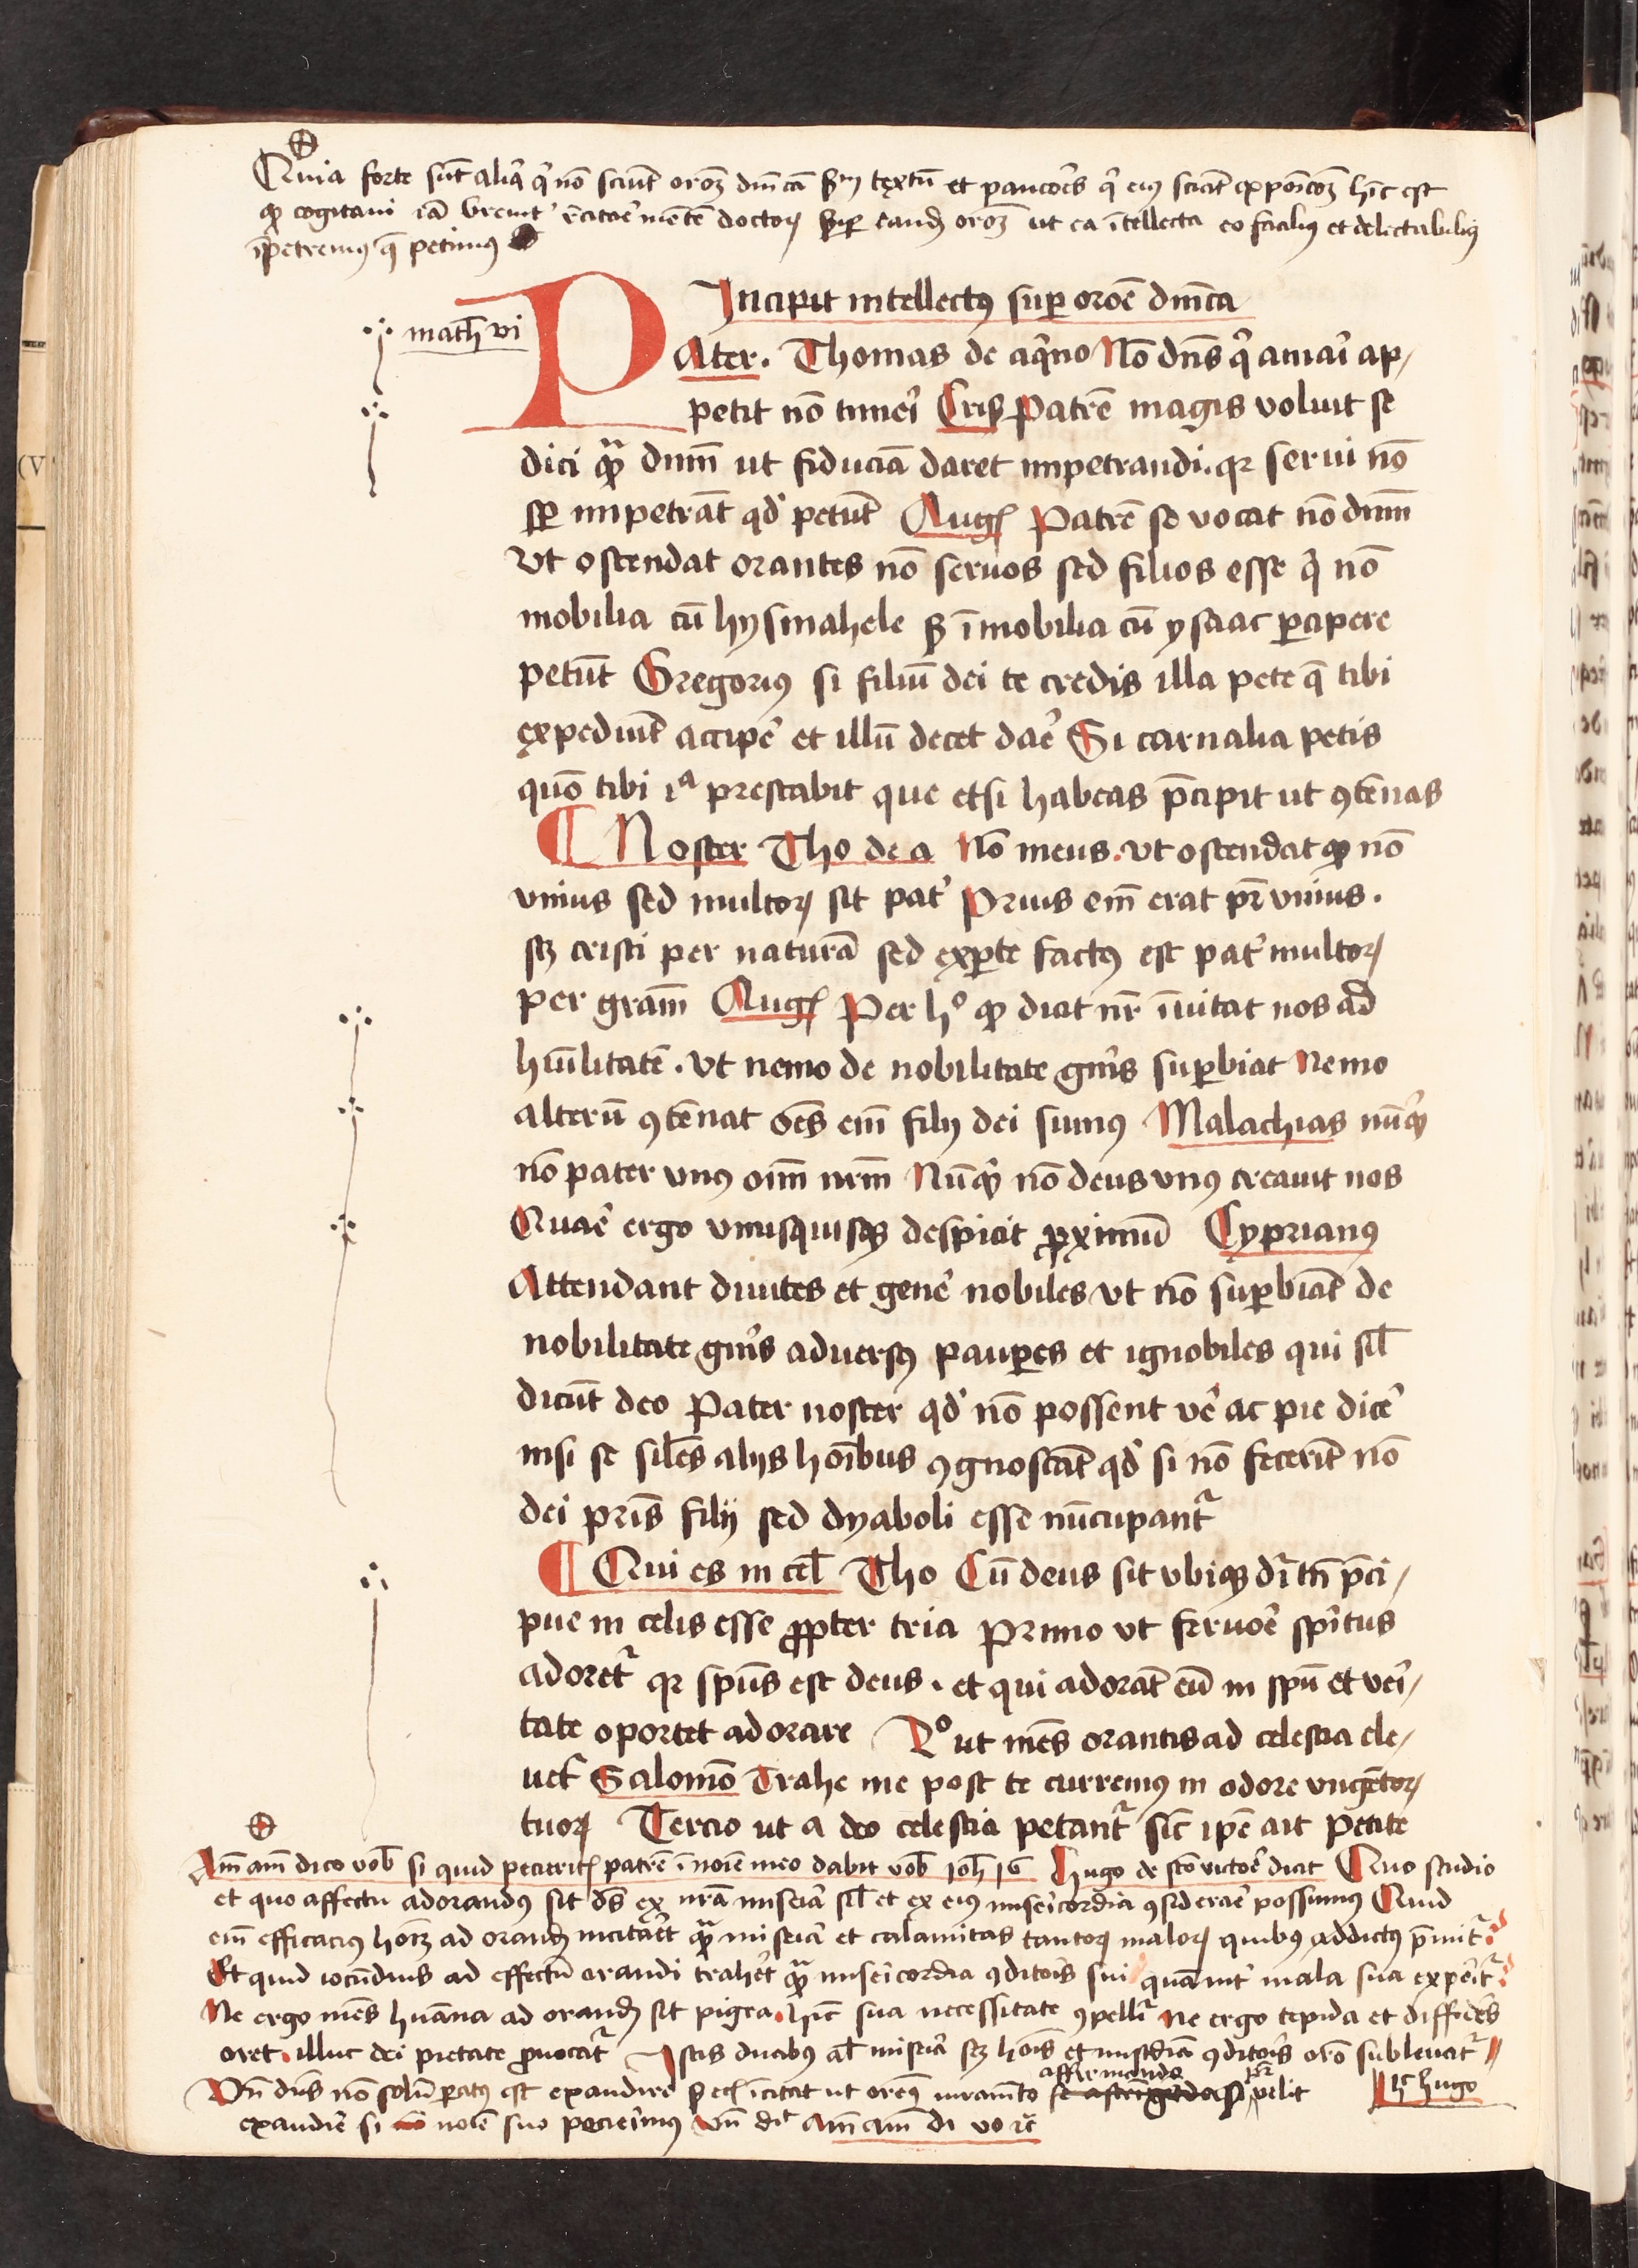 Quia forte sūt aliq̄ q̇ nō sciūt orōꝫ dn̄icā ẜm textū et pauciōrs q̇ eiꝰ sciāt exposicōꝫ hīc est
ꝙ cogitaui iā breuit᷑ rēcitaē mētē doctoꝝ suꝑ eandē orōꝫ ut ea ītellecta eo faciliꝰ et delectabiliꝰ
īpetremꝰ q̄ petimꝰ
Incipit intellectꝰ suꝑ oroē dn̄ica
math vi
Pater. Thomas de aq̇no Nō dn̄s q̇ amaī ap⸗
petit nō timeī Cris Patrē magis voluit se
dici qͣꝫ dn̄m ut fiduciā daret impetrandi. qꝛ serui nō
sꝑ impetrāt qd̓ petūt Augꝰ Patrē se vocat nō dn̄m
vt ostendat orantes nō seruos sed filios esse q̇ nō
mobilia cū hysmahele ꝫ īmobilia cū ysaac ꝑcipere
petūt Gregoriꝰ si filiū dei te credis illa pete q̄ tibi
expediūt accipē et illū decet daē Si carnalia petis
quō tibi iᵃ prestabit que etsi habeas p̄cipit ut ꝯtēnas
¶ Noster Tho de a Nō meus. vt ostendat ꝙ nō
vnius sed multoꝝ sit pat᷑ Prius em̄ erat pr̄ vnius.
sꝫ cristi per naturā sed exꝑte factꝰ est pat᷑ multoꝝ
per gram̄ Augꝰ Per hº ꝙ dicit nr̄ īuitat nos ad
hūilitatē. vt nemo de nobilitate gn̄is suꝑbiat Nemo
alterū ꝯtēnat oēs em̄ filij dei sumꝰ Malachias nūq̇d
nō pater vnꝰ oīm nr̄m Nūq̇d nō deus vnꝰ creauit nos
Quaē ergo vnusquisqꝫ despicit ꝓximū Cyprianꝰ
Attendant diuites et genē nobiles vt nō suꝑbiāt de
nobilitate gn̄is aduersꝰ pauꝑes et ignobiles qui sil̄
dicūt deo Pater noster qd̓ nō possent vē ac pie dicē
nisi se sil̄es alijs hoībus ꝯgnoscāt qd̓ si nō fecerīt nō
dei pr̄is filij sed dyaboli esse nūcupant᷑
¶ Qui es in cel̄ Tho Cū deus sit vbiqꝫ dr̄ tn̄ p̄ci⸗
pue in celis esse ꝓpter tria Primo vt feruoē sp̄itus
adoret᷑ qꝛ spūs est deus. et qui adorāt eū in spū et veī⸗
tate oportet adorare 2º ut mēs orantis ad celestia ele⸗
uet᷑ Salomō Trahe me post te curremꝰ in odore vngētoꝝ
tuoꝝ Tercio ut a deo celestia petant᷑ sic ip̄e ait Petite
Am̄ am̄ dico vob̄ si quid pecieritꝭ patrē ī noīe meo dabit vob̄ ioh̄ 16 Hugo de sc̄o victoē dicit Quo studio
et quo affectu adorandꝰ sit ds̄ ex nr̄a miseīa sil̄ et ex eiꝰ miseīcordia ꝯsideraē possumꝰ Quid
em̄ efficaciꝰ hoīeꝫ ad orandū incitaēt qͣꝫ miseīa et calamitas tantoꝝ maloꝝ quibꝰ addictꝰ p̄mit᷑
Et quid iocūdius ad effectū orandi trahēt qͣꝫ miseīcordia ꝯditoīs sui quā int᷑ mala sua expeīt᷑
Ne ergo mēs hūana ad orandū sit pigra. hīc sua necessitate ꝯpellit᷑ ne ergo tepida et diffidēs
oret. illuc dei pietate ꝓuocat᷑ Istis duabꝰ al̄ miseīa sꝫ hoīs et miseīdia ꝯditoīs orō subleuat᷑
Vn̄ dn̄s nō solū ꝑatꝰ est exaudire ꝫ ec̄ īcitat ut oremꝰ iuramēto affirmando pr̄ velit
exaudiē si noīe suo pecieīmꝰ vn̄ dīt am̄ am̄ di vo ec̄
hͨ hugo